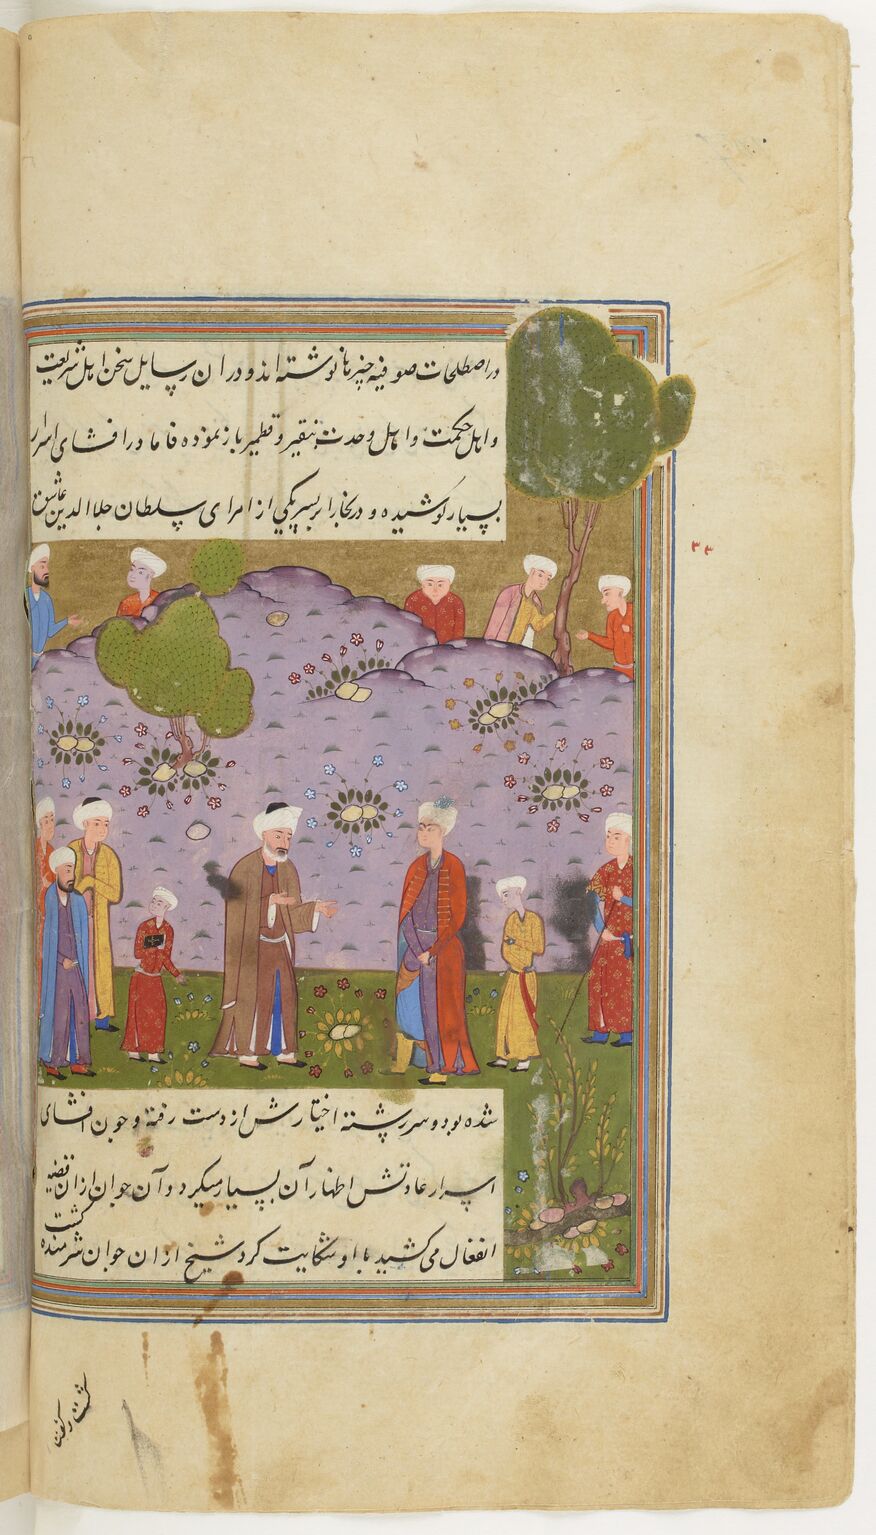 در اصطلحات صوفیه چیزها نوشته اند و در ان رسایل سخن اهل شریعت
و اهل حکمت و اهل وحدت بنقیر و قطمیر باز نموده فاما در افشای اسرار
بسیار کوشیده و در بخارا بر پسر یکی از امرای سلطان جلاالدین عاشق
٣٣
شده بود و سررشته اختیارش از دست رفته و چون افشای
اسرار عادتش اظهار آن بسیار میکرد و آن جوان از ان قضیه
انفعال می کشید با او شکایت کرد شیخ از ان جوان شرمنده گشت